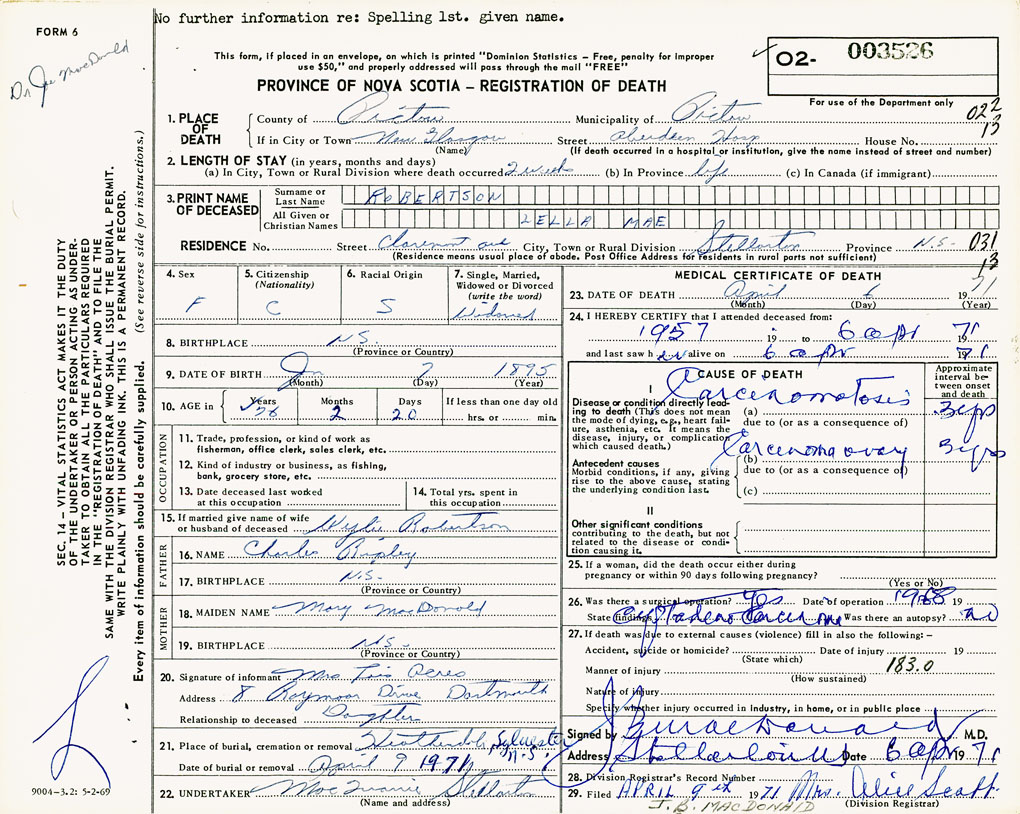 No further information re: Spelling 1st. given name.
FORM 6
Dr. Joe MacDonald
This form, if placed in an envelope, on which is printed "Dominion Statistics – Free, penalty for improper
use $50," and properly addressed will pass through the mail "FREE"
PROVINCE OF NOVA SCOTIA – REGISTRATION OF DEATH
02- 003526
For use of the Department only
022
13
1. PLACE OF DEATH
County of Pictou Municipality of Pictou
If in City or Town New Glasgow Street Aberdeen Hosp House No.
(Name) (If death occurred in a hospital or institution, give the name instead of street and number)
2. LENGTH OF STAY (in years, months and days)
(a) In City, Town or Rural Division where death occurred 2 weeks (b) In Province life (c) In Canada (if immigrant)
3. PRINT NAME OF DECEASED
Surname or Last Name ROBERTSON
All Given or Christian Names LELLA MAE
RESIDENCE No. Street Claremont ave City, Town or Rural Division Stellarton Province N.S. 031
13
(Residence means usual place of abode. Post Office Address for residents in rural parts not sufficient)
4. Sex F
5. Citizenship (Nationality) C
6. Racial Origin S
7. Single, Married, Widowed or Divorced (write the word) Widowed
8. BIRTHPLACE N.S.
(Province or Country)
9. DATE OF BIRTH Jan 7 1895
(Month) (Day) (Year)
10. AGE in Years 76 Months 2 Days 20 If less than one day old
hrs. or min.
OCCUPATION
11. Trade, profession, or kind of work as
fisherman, office clerk, sales clerk, etc.
12. Kind of industry or business, as fishing,
bank, grocery store, etc.
13. Date deceased last worked
at this occupation
14. Total yrs. spent in
this occupation
15. If married give name of wife
or husband of deceased Wylie Robertson
FATHER
16. NAME Charles Ripley
17. BIRTHPLACE N.S.
(Province or Country)
MOTHER
18. MAIDEN NAME Mary MacDonald
19. BIRTHPLACE N.S.
(Province or Country)
20. Signature of informant Mrs
Address 8 Raymoor Drive Dartmouth
Relationship to deceased Daughter
21. Place of burial, cremation or removal Heatherdale, Sylvester N.S.
Date of burial or removal April 9 1971
22. UNDERTAKER Stellarton
(Name and address)
MEDICAL CERTIFICATE OF DEATH
23. DATE OF DEATH April 6 1971
(Month) (Day) (Year)
24. I HEREBY CERTIFY that I attended deceased from:
1957 19 to 6 apr 71
and last saw her alive on 6 apr 1971
CAUSE OF DEATH
Approximate interval between onset and death
I
Disease or condition directly leading to death (This does not mean
the mode of dying, e.g., heart failure, asthenia, etc. It means the
disease, injury, or complication
which caused death.)
(a) Carcinomatosis 3 yrs
due to (or as a consequence of)
Antecedent causes
Morbid conditions, if any, giving
rise to the above cause, stating
the underlying condition last.
(b) Carcinoma ovary 3 yrs
due to (or as a consequence of)
(c)
II
Other significant conditions
contributing to the death, but not
related to the disease or condition causing it.
25. If a woman, did the death occur either during
pregnancy or within 90 days following pregnancy?
(Yes or No)
26. Was there a surgical operation? Yes Date of operation 1968 19
State findings Was there an autopsy? no
27. If death was due to external causes (violence) fill in also the following: –
Accident, suicide or homicide? Date of injury 19
(State which)
Manner of injury 183.0
(How sustained)
Nature of injury
Specify whether injury occurred in industry, in home, or in public place
Signed by M.D.
Address Stellarton NS Date 6 apr 1971
28. Division Registrar's Record Number
29. Filed APRIL 9th 1971 Mrs. Alice Scott
J. B. MACDONALD (Division Registrar)
SEC. 14 – VITAL STATISTICS ACT MAKES IT THE DUTY
OF THE UNDERTAKER OR PERSON ACTING AS UNDER-
TAKER TO OBTAIN ALL THE PARTICULARS REQUIRED
IN THE "REGISTRATION OF DEATH" AND TO FILE THE
SAME WITH THE DIVISION REGISTRAR WHO SHALL ISSUE THE BURIAL PERMIT.
WRITE PLAINLY WITH UNFADING INK. THIS IS A PERMANENT RECORD.
Every item of information should be carefully supplied. (See reverse side for instructions.)
9004-3.2: 5-2-69